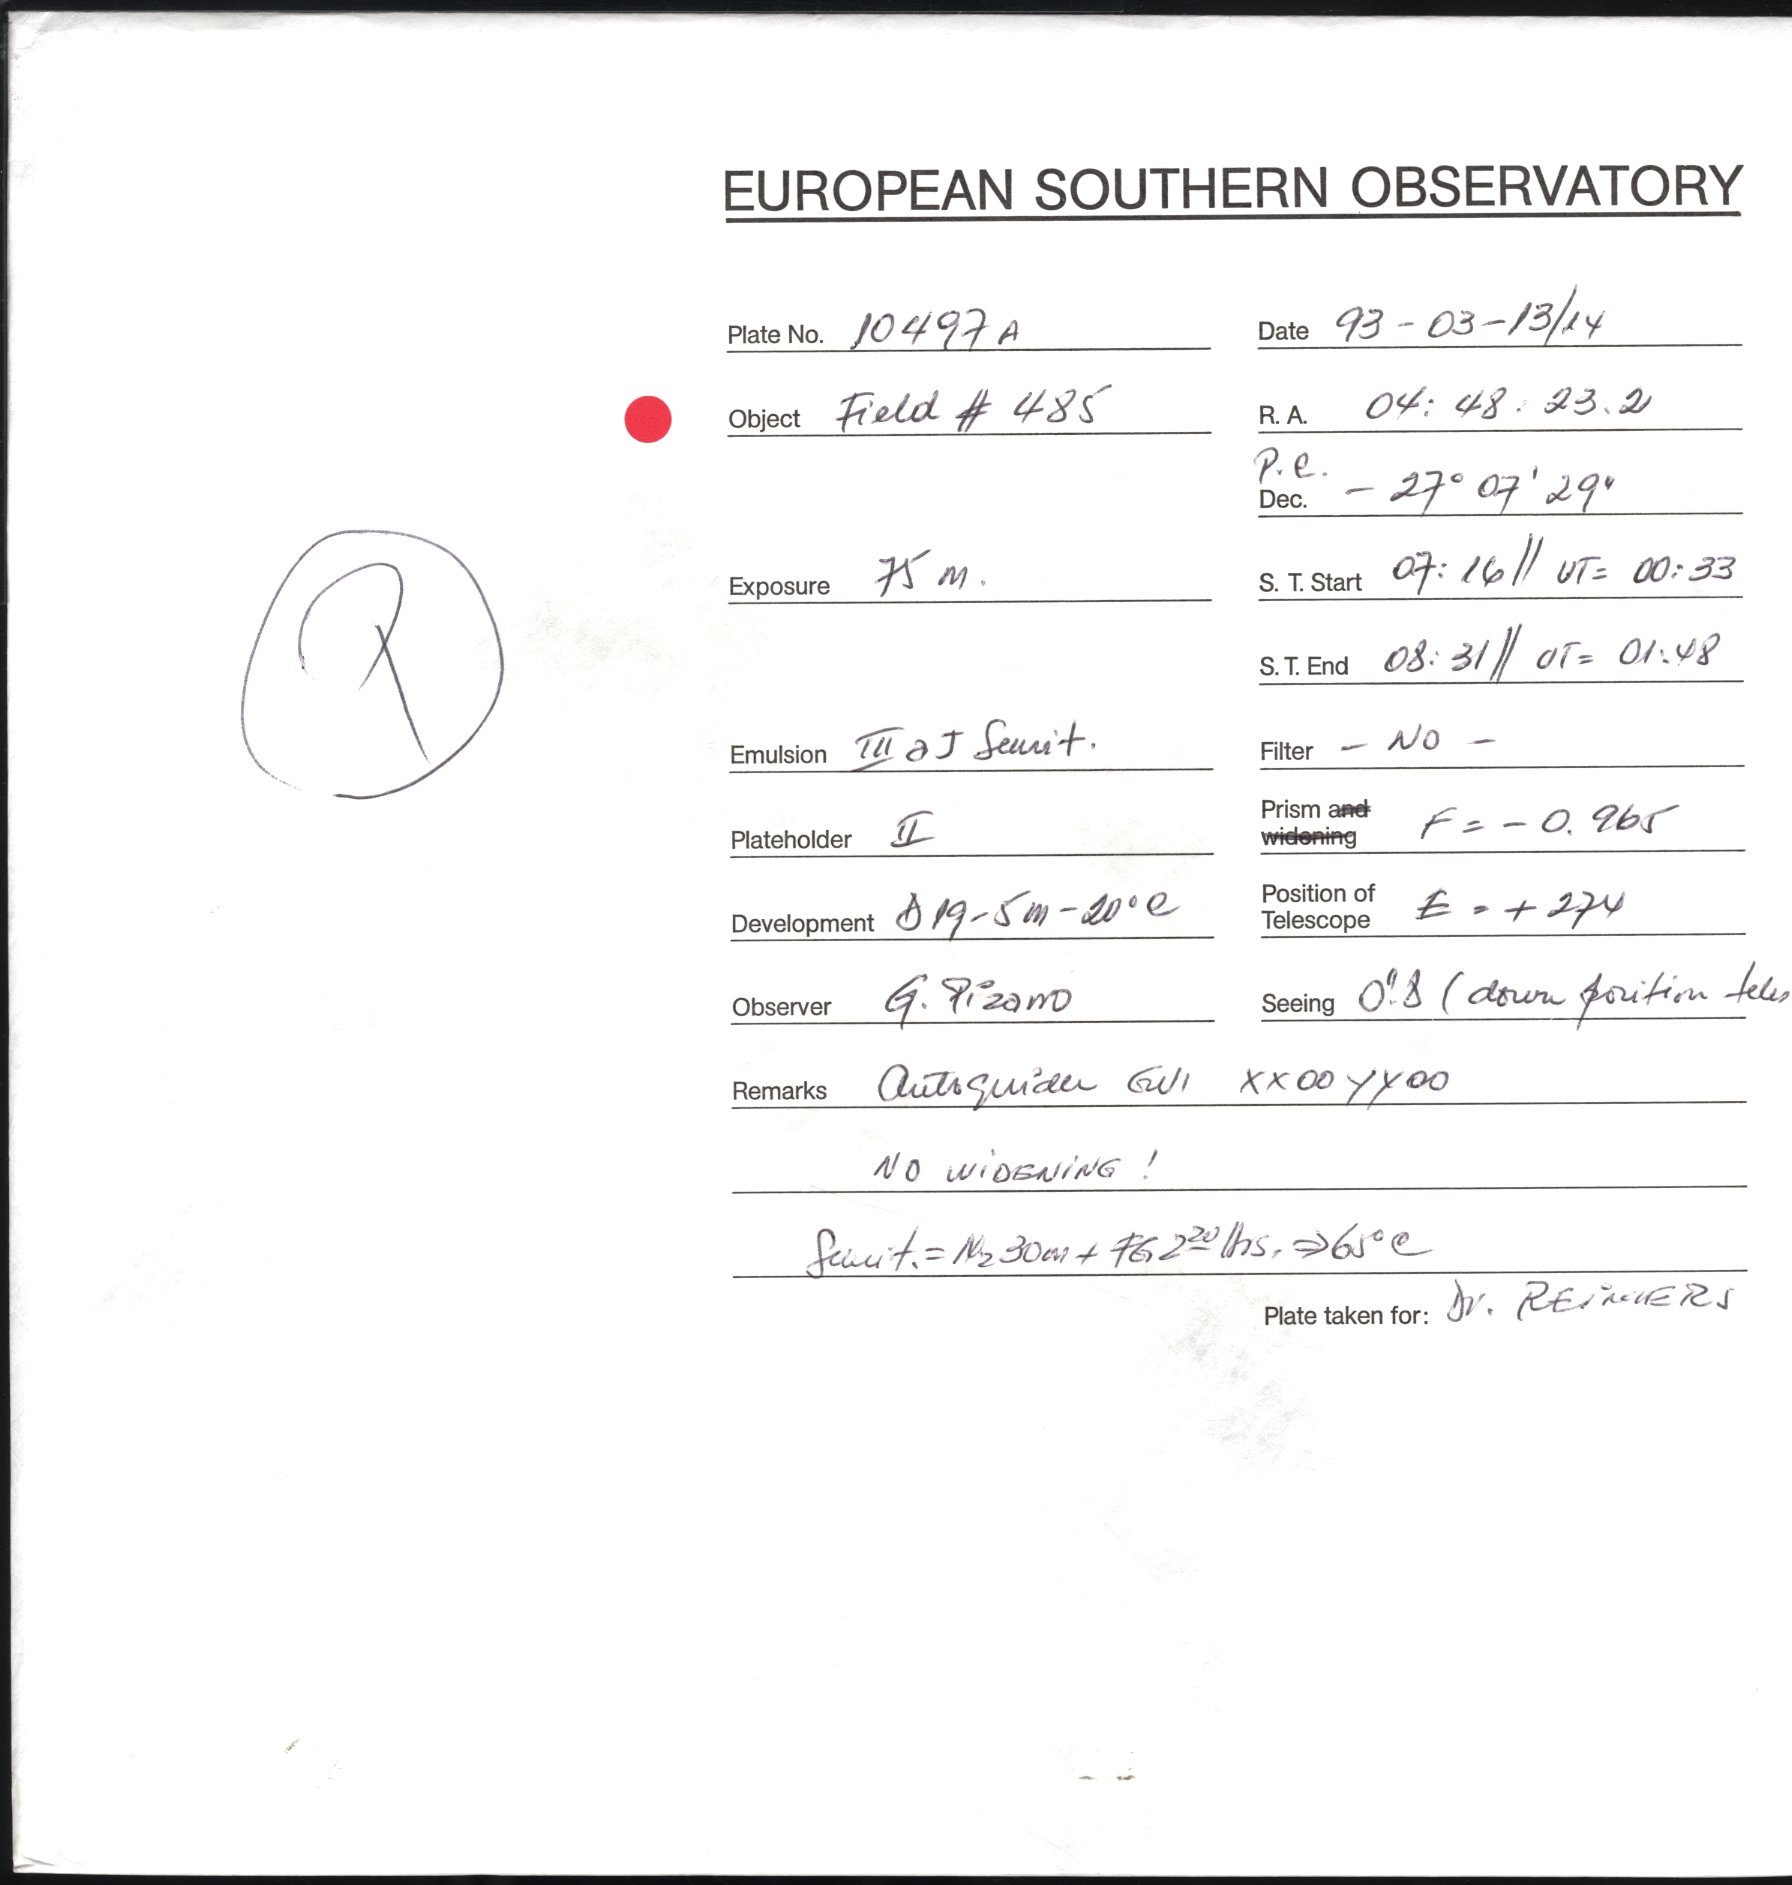 EUROPEAN SOUTHERN OBSERVATORY
Plate No. 10497 A
Date 93-03-13/14
Object Field # 485
R. A. 04: 48: 23.2
P.C.
Dec. - 27° 07' 29"
Exposure 75 m.
S. T. Start 07: 16 // UT= 00:33
S. T. End 08: 31 // UT= 01:48
R
Emulsion III aJ Sensit.
Filter - NO -
Plateholder II
Prism and widening F = - 0.965
Development D19-5m-20°C
Position of Telescope E = + 274
Observer G. Pizarro
Seeing 0".8 (down position teles
Remarks Autoguider GW1 XX00YY00
NO WIDENING !
Sensit. = N2 30m + FG 2 20 hrs. ⇒ 65°C
Plate taken for: Dr. REIMERS